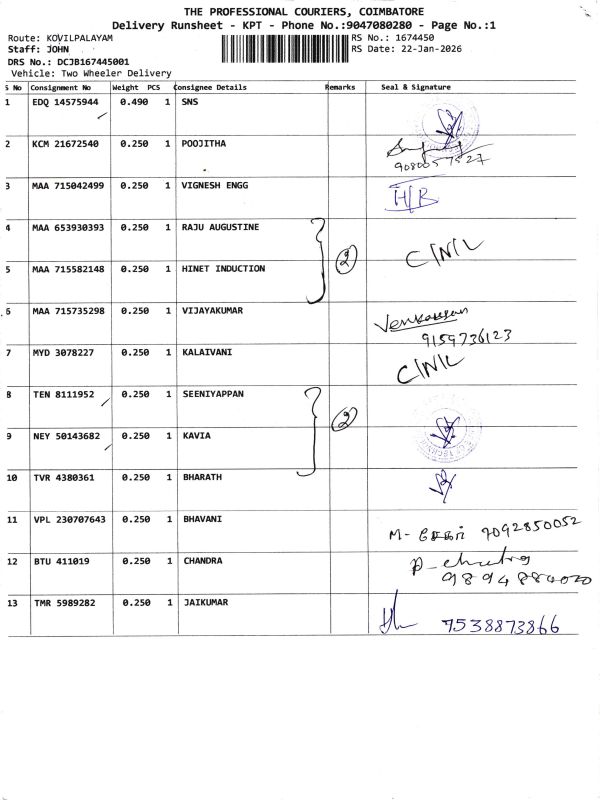 THE PROFESSIONAL COURIERS, COIMBATORE
Delivery Runsheet - KPT - Phone No.:9047080280 - Page No.:1
Route: KOVILPALAYAM RS No.: 1674450
Staff: JOHN RS Date: 22-Jan-2026
DRS No.: DCJB167445001
Vehicle: Two Wheeler Delivery
S No Consignment No Weight PCS Consignee Details Remarks Seal & Signature
1 EDQ 14575944 0.490 1 SNS
2 KCM 21672540 0.250 1 POOJITHA
9080057527
3 MAA 715042499 0.250 1 VIGNESH ENGG H/B
4 MAA 653930393 0.250 1 RAJU AUGUSTINE
2 C/N/L
5 MAA 715582148 0.250 1 HINET INDUCTION
6 MAA 715735298 0.250 1 VIJAYAKUMAR
9159736123
7 MYD 3078227 0.250 1 KALAIVANI C/N/L
8 TEN 8111952 0.250 1 SEENIYAPPAN
2
9 NEY 50143682 0.250 1 KAVIA
10 TVR 4380361 0.250 1 BHARATH
11 VPL 230707643 0.250 1 BHAVANI M- 9092850052
12 BTU 411019 0.250 1 CHANDRA
9894884020
13 TMR 5989282 0.250 1 JAIKUMAR 7538873866